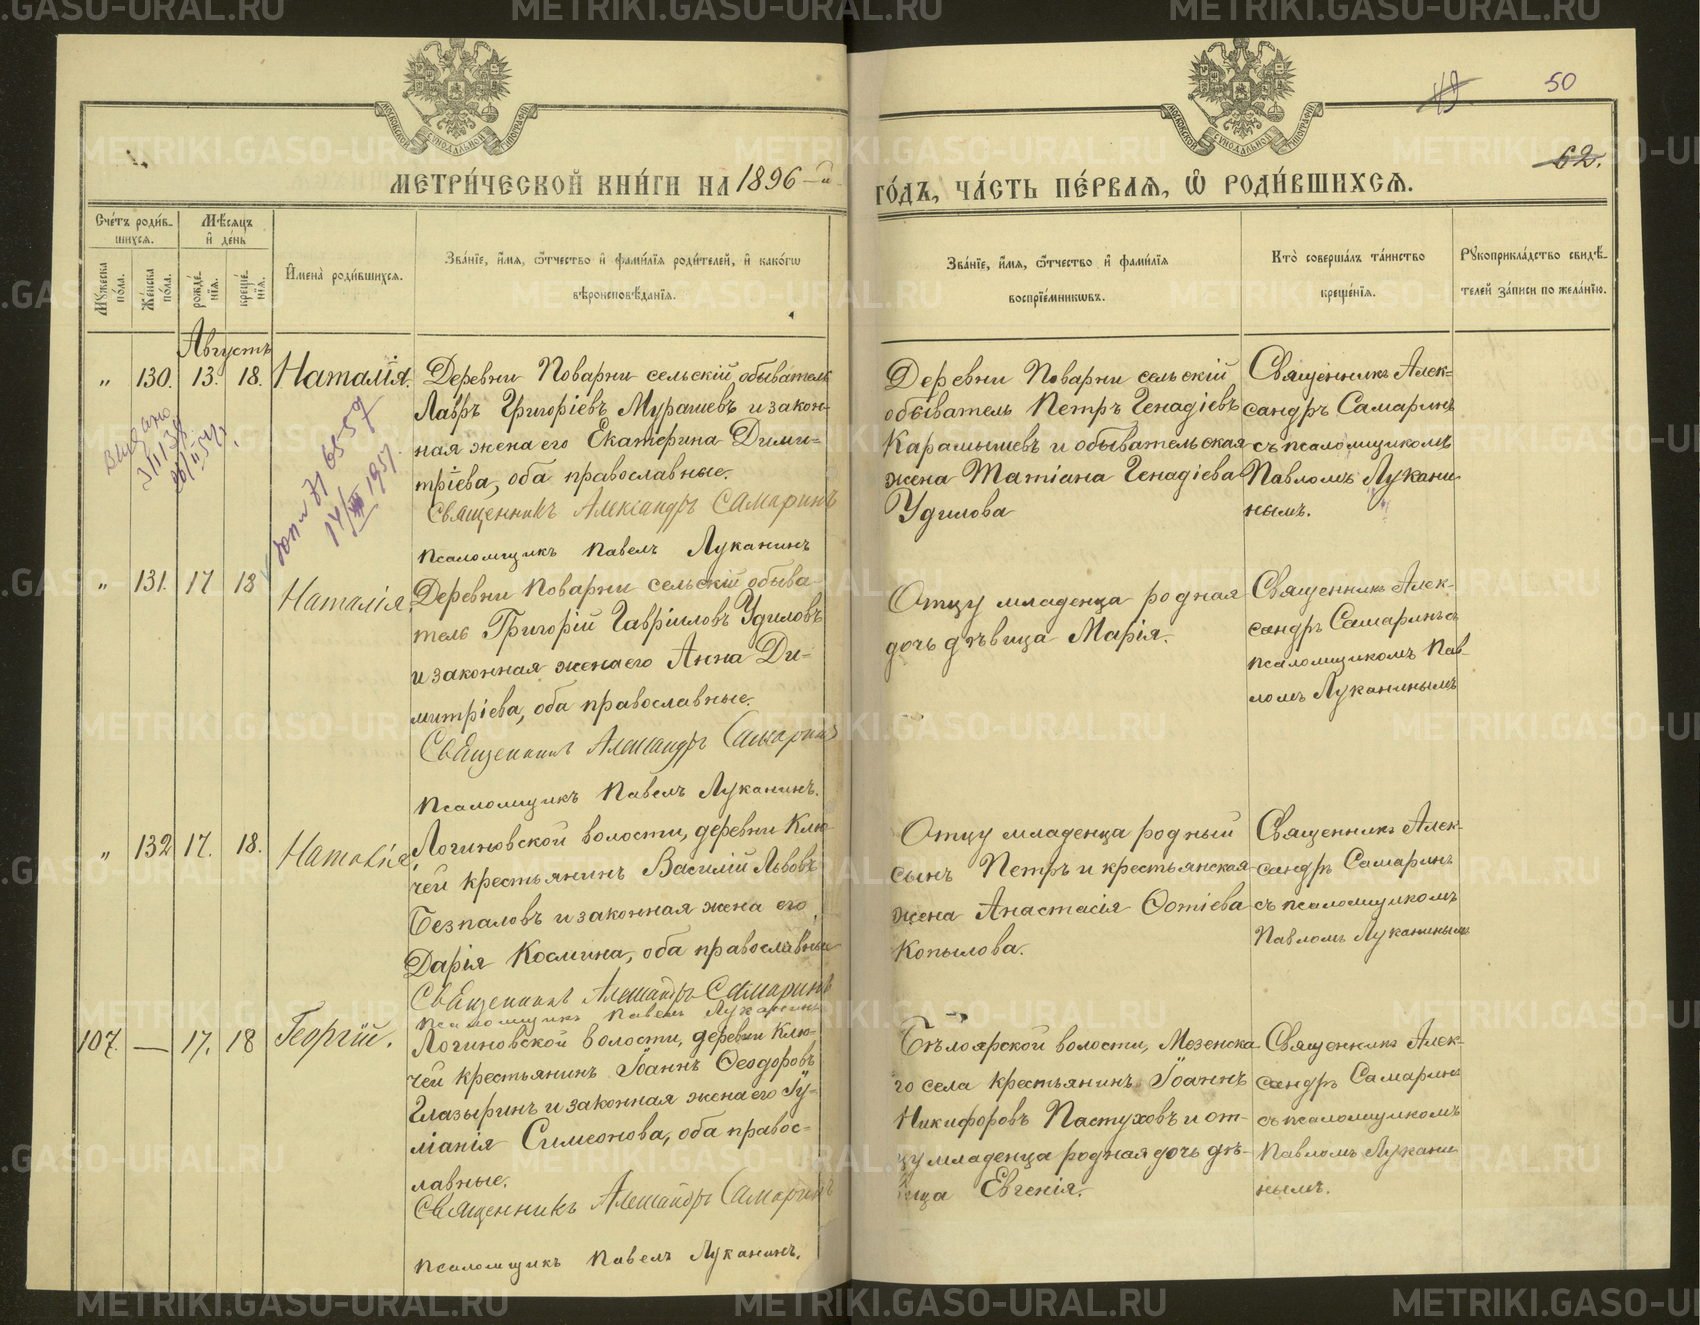 METRIKI.GASO-URAL.RU
50
62.
МОСКОВСКОЙ СѴНОДАЛЬНОЙ ТИПОГРАФІИ
МЕТРИ́ЧЕСКОЙ КНИ́ГИ НА 1896-й
ГО́ДЪ, ЧА́СТЬ ПЕ́РВАѦ, Ѡ҆ РОДИ́ВШИХСѦ.
Сче́тъ роди́в-
шихсѧ.
Мѣ́сѧцъ
и҆ де́нь
Мꙋ́жеска по́ла.
Же́нска по́ла.
рожде́-
нїѧ.
креще́-
нїѧ.
И҆мена̀ роди́вшихсѧ.
Зва́нїе, и҆́мѧ, ѻ҆́тчество и҆ фами́лїѧ роди́телей, и҆ како́гѡ
вѣроисповѣ́данїѧ.
Зва́нїе, и҆́мѧ, ѻ҆́тчество и҆ фами́лїѧ
воспрїе́мникѡвъ.
Кто̀ соверша́лъ та́инство
креще́нїѧ.
Рꙋкоприкла́дство свидѣ́-
телей за́писи по жела́нїю.
Августъ
" 130. 13. 18. Наталія.
Деревни Поварни сельскій обыватель
Лавръ Григоріевъ Мурашевъ и закон-
ная жена его Екатерина Дими-
тріева, оба православные.
Священникъ Александръ Самаринъ
Псаломщикъ Павелъ Луканинъ
Деревни Поварни сельскій
обыватель Петръ Генадіевъ
Карамышевъ и обывательская
жена Татіана Генадіева
Удилова
Священникъ Алек-
сандръ Самаринъ
съ псаломщикомъ
Павломъ Лукани
нымъ.
Выдано
14/VII 1951.
" 131. 17 18 Наталія.
Деревни Поварни сельскій обыва-
тель Григорій Гавріиловъ Удиловъ
и законная жена его Анна Ди-
митріева, оба православные.
Священникъ Александръ Самаринъ
Псаломщикъ Павелъ Луканинъ.
Отцу младенца родная
дочь дѣвица Марія.
Священникъ Алек-
сандръ Самаринъ съ
псаломщикомъ Пав-
ломъ Луканинымъ
" 132 17. 18. Наталія
Логиновской волости, деревни Клю-
чей крестьянинъ Василій Львовъ
Безпаловъ и законная жена его
Дарія Космина, оба православные
Священникъ Александръ Самаринъ
Псаломщикъ Павелъ Луканинъ
Отцу младенца родный
сынъ Петръ и крестьянская
жена Анастасія Фотіева
Копылова.
Священникъ Алек-
сандръ Самаринъ
съ псаломщикомъ
Павломъ Луканинымъ
107. — 17. 18 Георгій.
Логиновской волости, деревни Клю-
чей крестьянинъ Іоаннъ Феодоровъ
Глазыринъ и законная жена его Іу-
ліанія Симеонова, оба правос-
лавные.
Священникъ Александръ Самаринъ
Псаломщикъ Павелъ Луканинъ.
Бѣлоярской волости, Мезенска
го села крестьянинъ Іоаннъ
Никифоровъ Пастуховъ и от-
цу младенца родная дочь дѣ-
вица Евгенія.
Священникъ Алек-
сандръ Самаринъ
съ псаломщикомъ
Павломъ Лукани
нымъ.